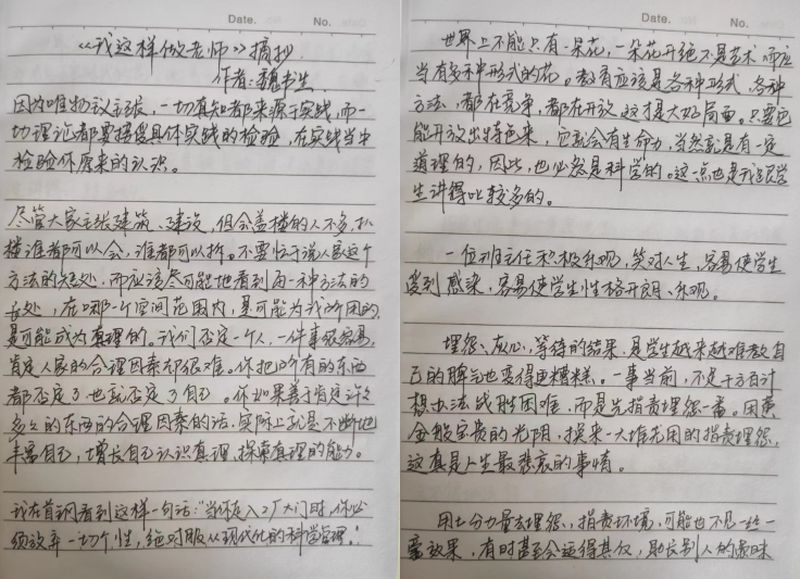 Date.
No.
《我这样做老师》摘抄
作者:魏书生
因为唯物议主张,一切真知都来源于实践,而一
切理论都要接受具体实践的检验,在实践当中
检验你原来的认识。
尽管大家主张建筑、建设,但会盖楼的人不多,扒
楼谁都可以会,谁都可以拆。不要忙于说人家这个
方法的短处,而应该尽可能地看到每一种方法的
长处,在哪一个空间范围内,是可能为我所用的,
是可能成为真理的。我们否定一个人,一件事很容易,
肯定人家的合理因素却很难。你把所有的东西
都否定了也就否定了自己。你如果善于肯定许许
多多的东西的合理因素的话,实际上就是不断地
丰富自己,增长自己认识真理、探索真理的能力。
我在首钢看到这样一句话:"当你走入工厂大门时,你必
须放弃一切个性,绝对服从现代化的科学管理。"
Date.
No.
世界上不能只有一朵花,一朵花开绝不是艺术,而应
当有多种形式的花。教育应该是各种形式、各种
方法,都在竞争,都在开放,这才是大好局面。只要它
能开放出特色来,它就会有生命力,当然就是有一定
道理的,因此,也必然是科学的。这一点也是我跟学
生讲得比较多的。
一位班主任积极乐观,笑对人生,容易使学生
受到感染,容易使学生性格开朗、乐观。
埋怨、灰心、等待的结果,是学生越来越难教,自
己的脾气也变得更糟糕。一事当前,不是千方百计
想办法战胜困难,而是先指责埋怨一番。用黄
金般宝贵的光阴,换来一大堆无用的指责埋怨,
这真是人生最悲哀的事情。
用七分力量去埋怨、指责环境,可能也不见一丝一
毫效果,有时甚至会适得其反,助长别人的愚昧